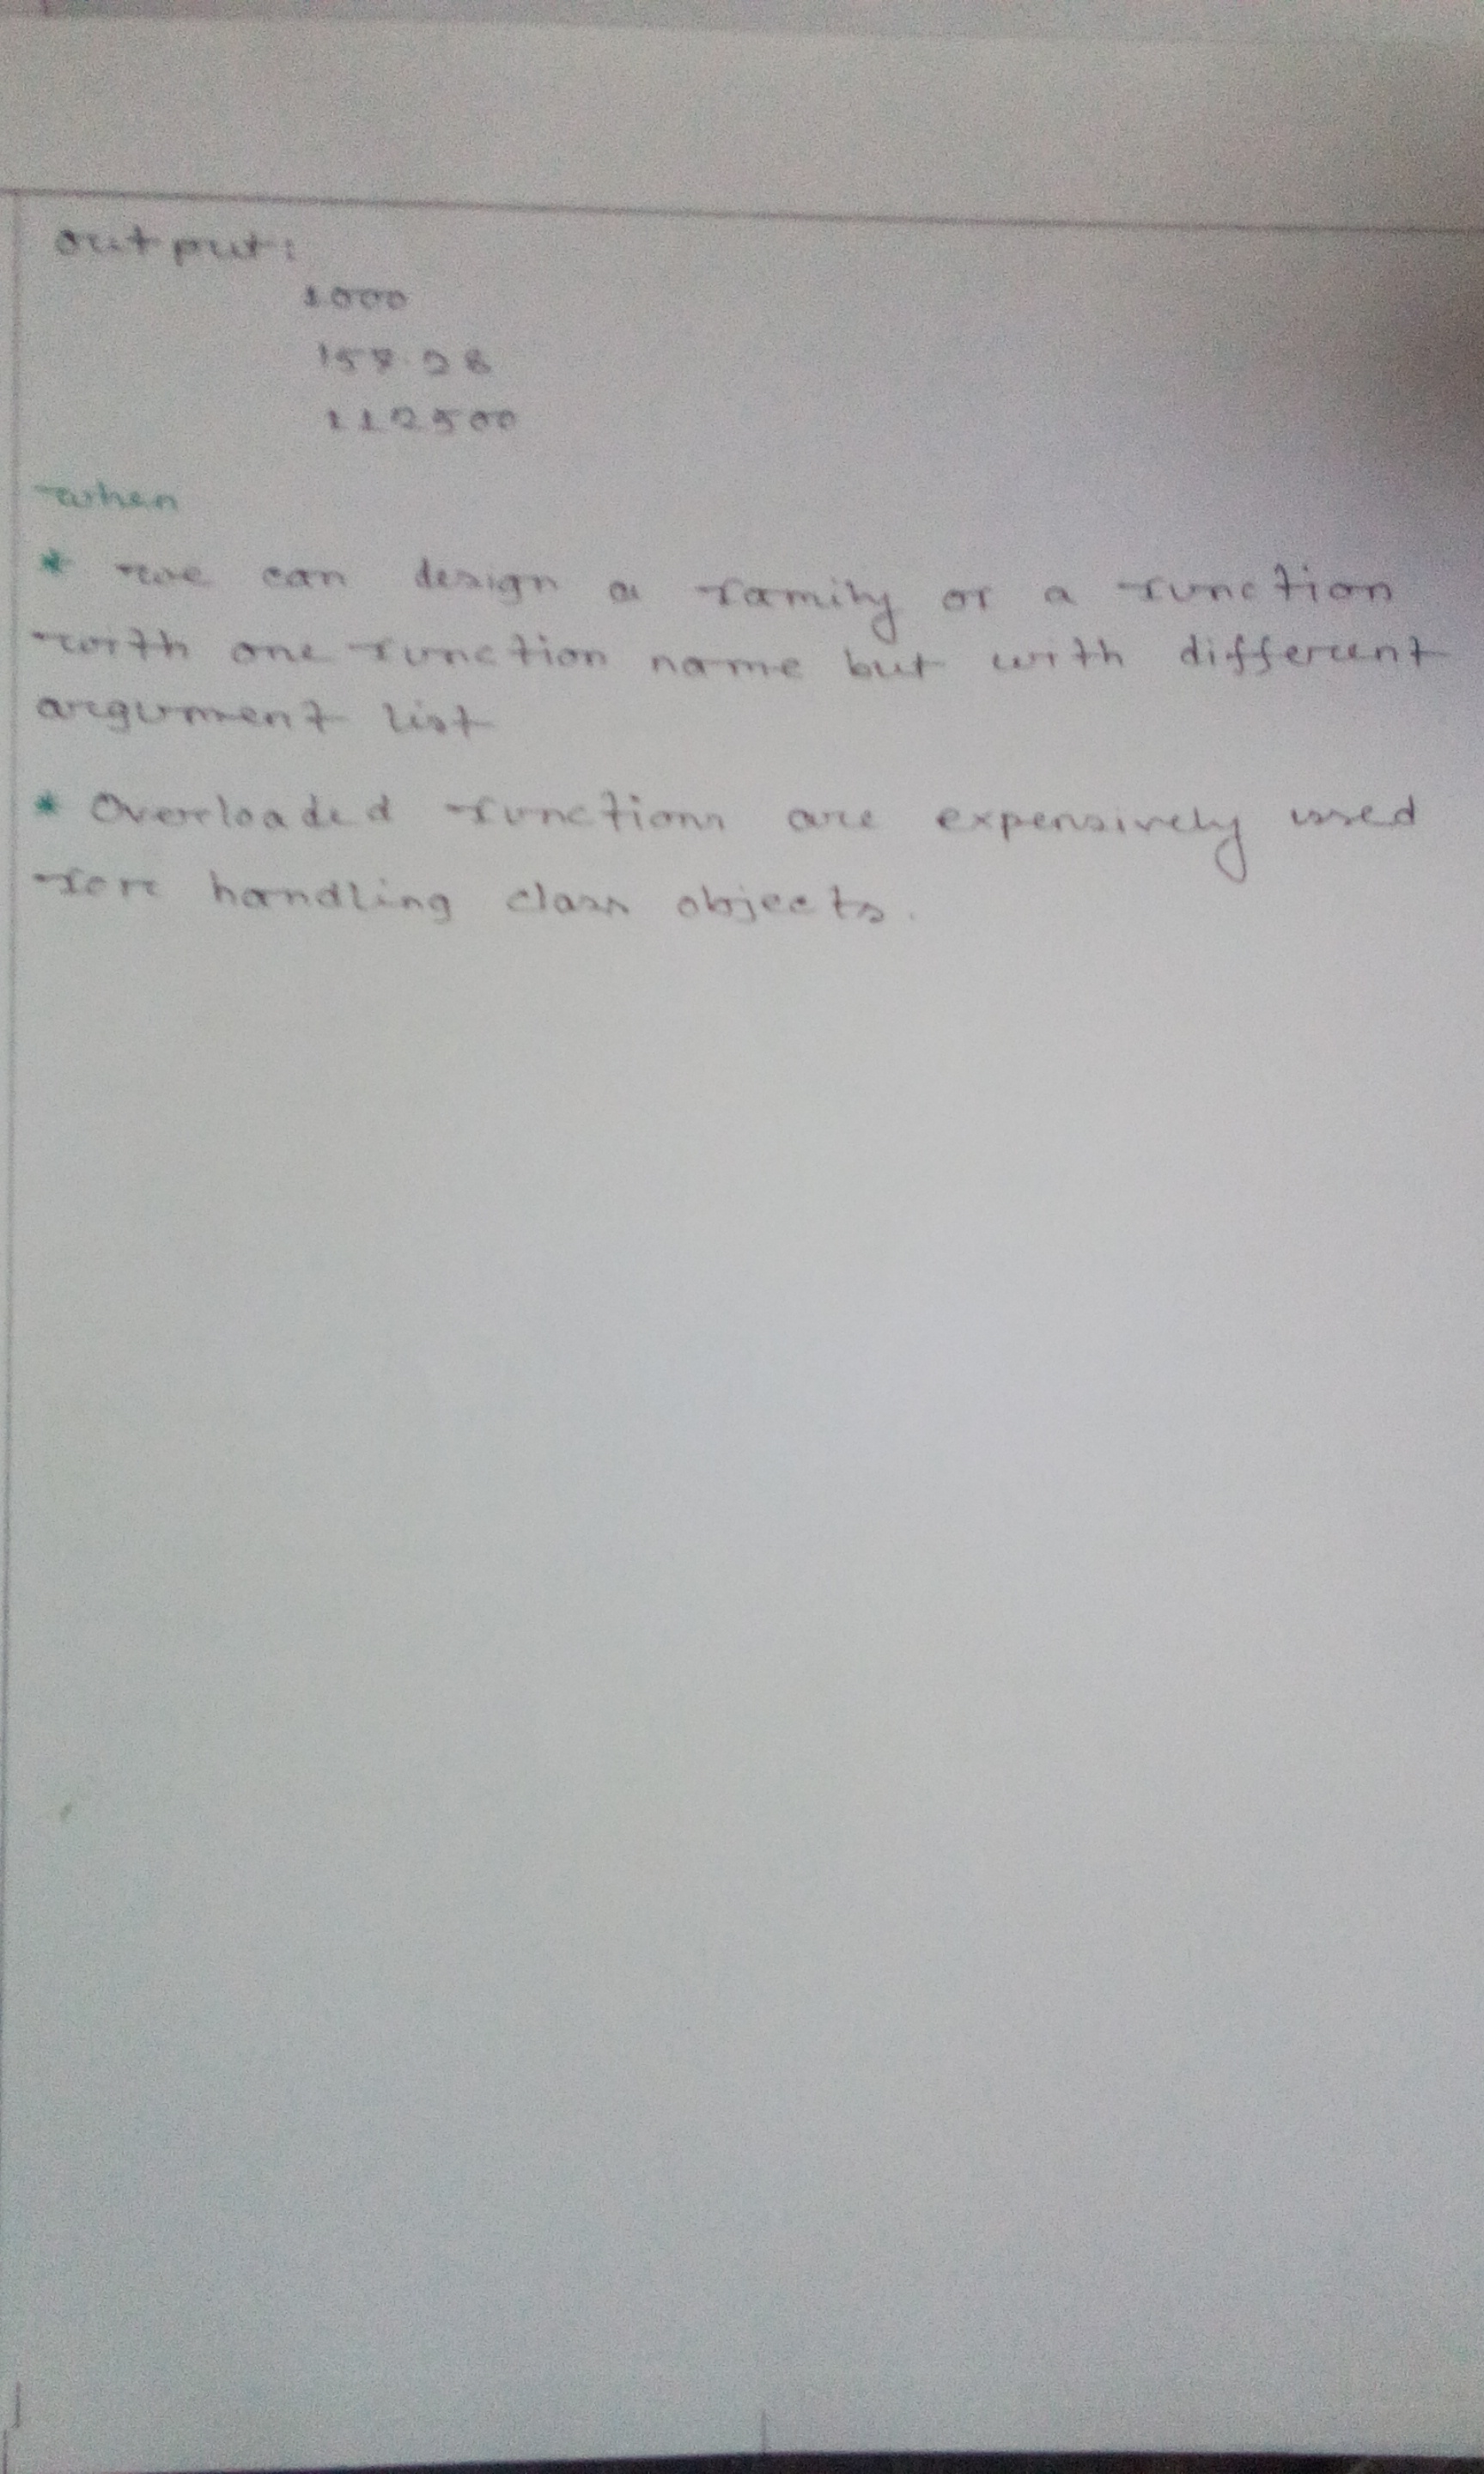 output:
1000
157.26
112500
when
* we can design a family of a function
with one function name but with different
argument list
* Overloaded functions are expensively used
for handling class objects.